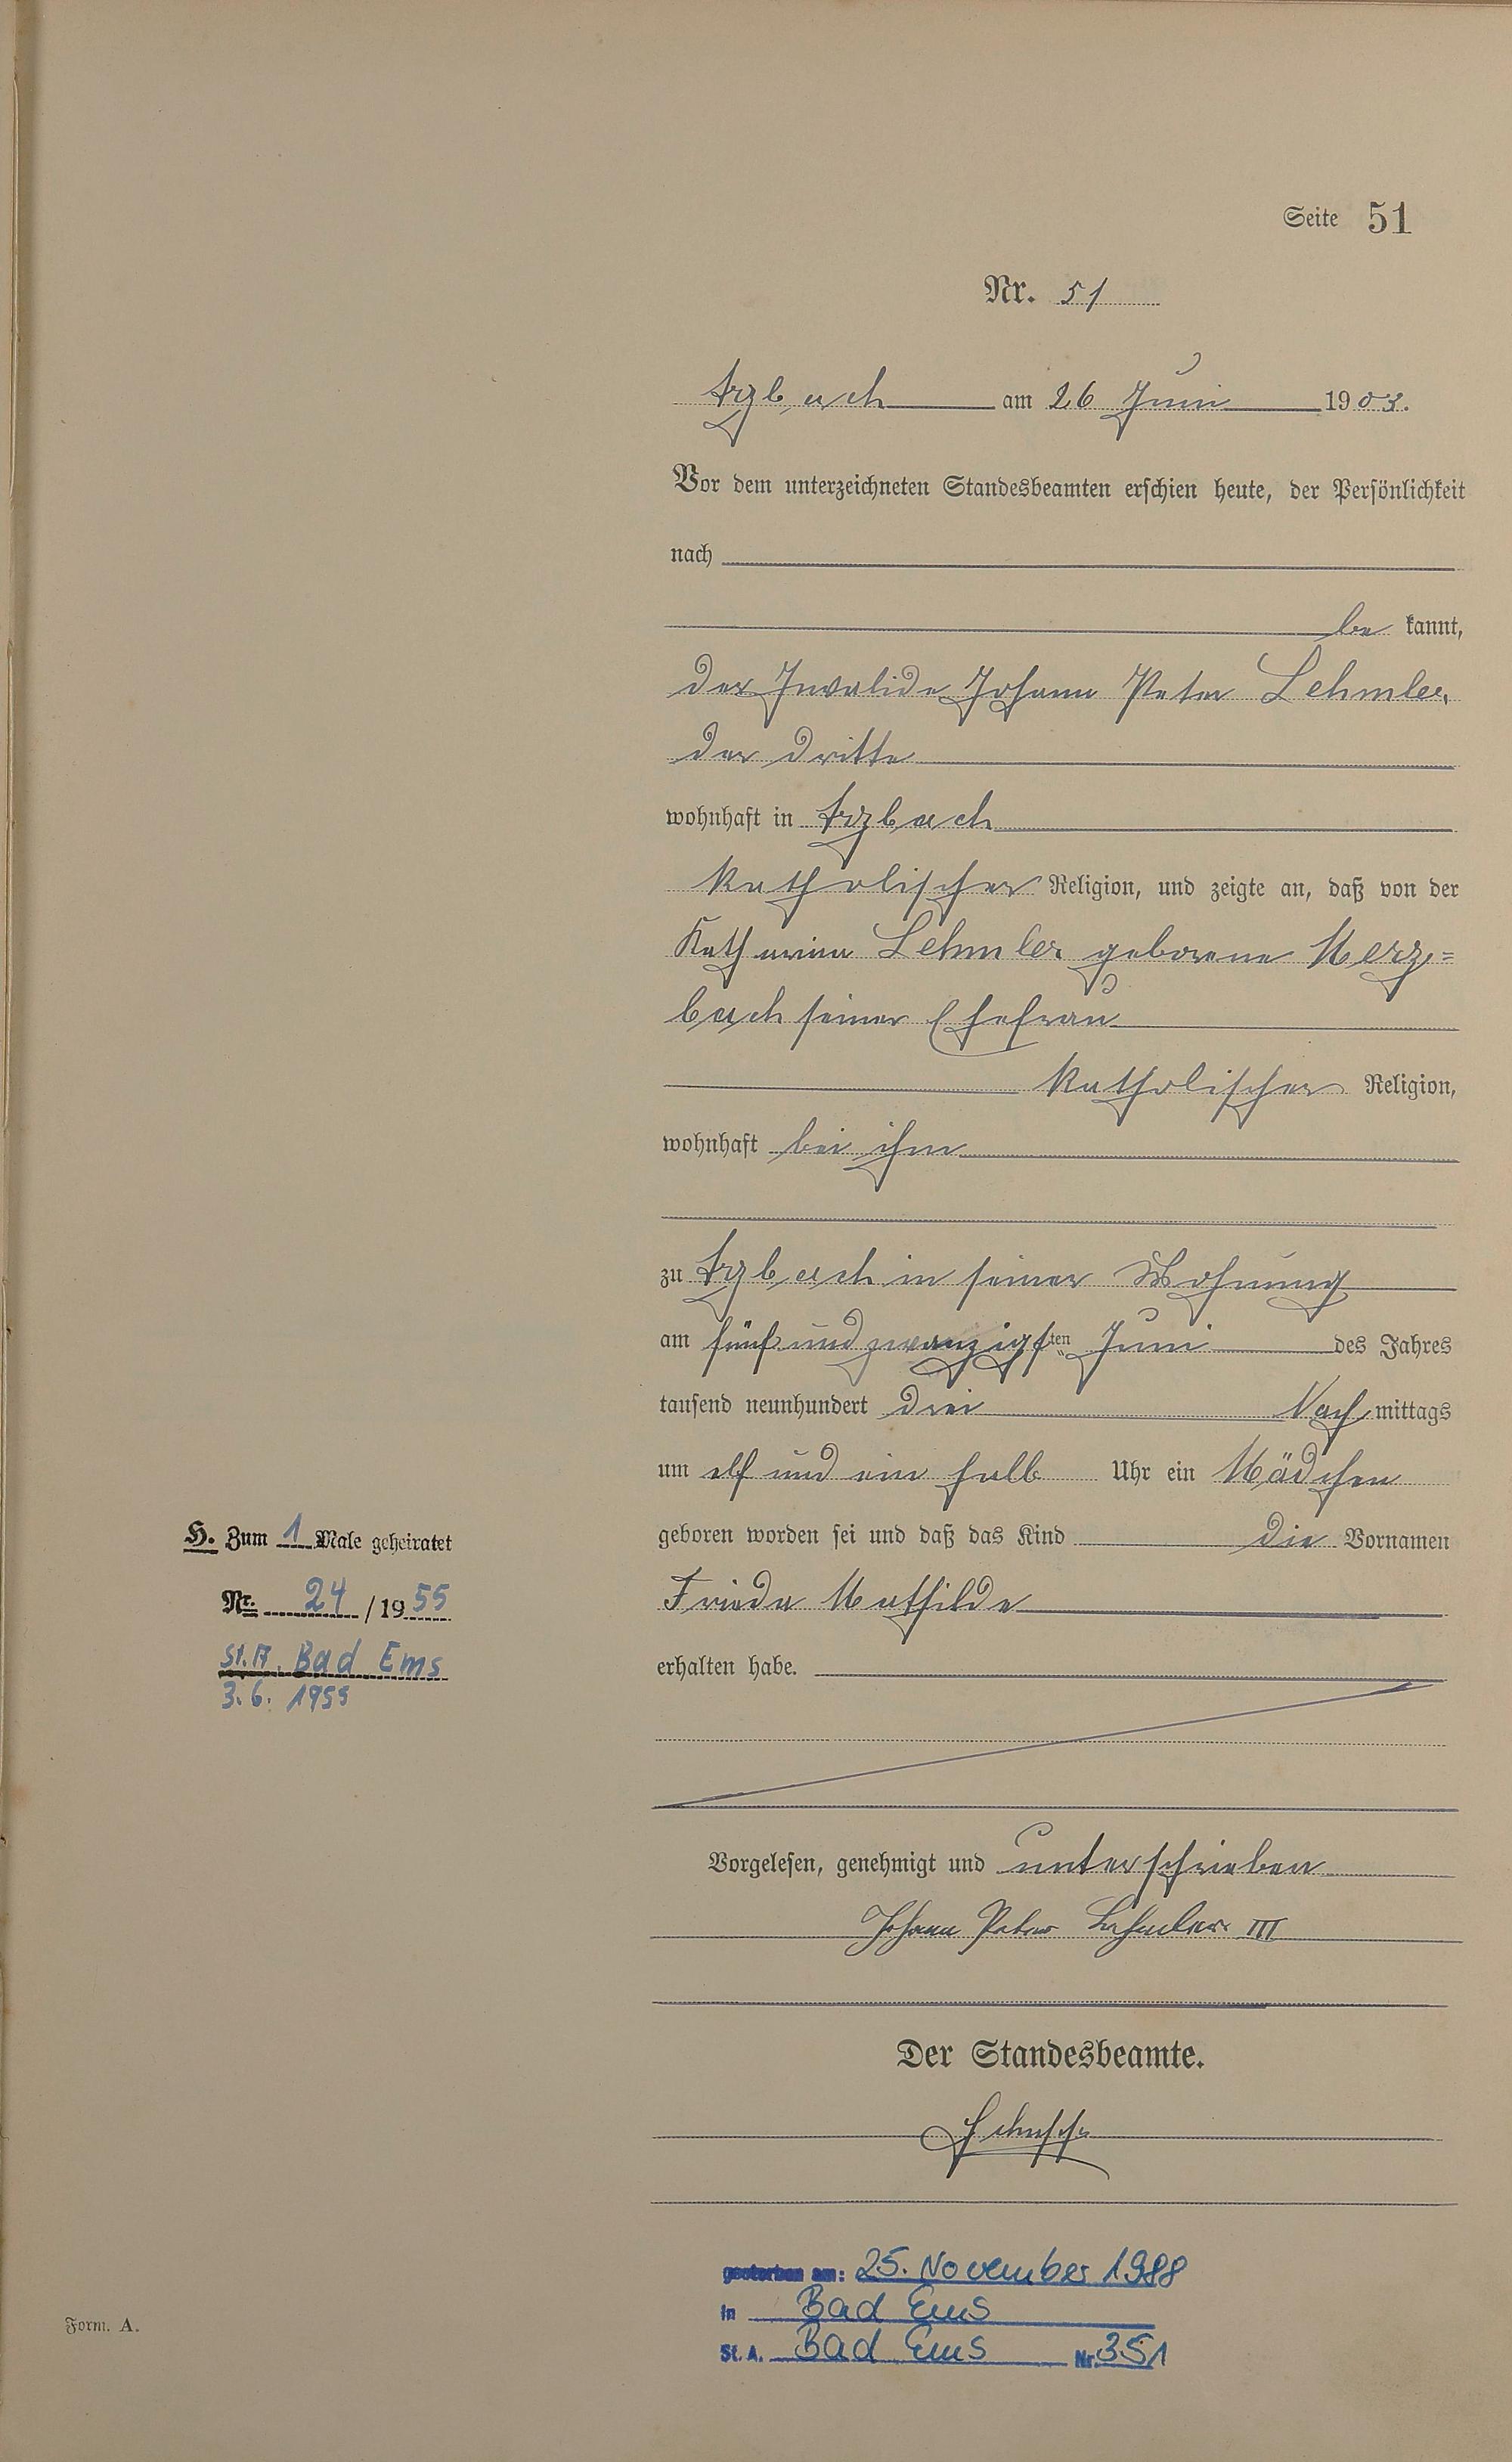 Seite 51
Nr. 51
Arzbach am 26 Juni 1903.
Vor dem unterzeichneten Standesbeamten erschien heute, der Persönlichkeit
nach
be kannt,
der Invalide Johann Peter Lehmler,
der dritte
wohnhaft in Arzbach
katholischer Religion, und zeigte an, daß von der
Katharina Lehmler geborene Merz=
bach seiner Ehefrau
katholischer Religion,
wohnhaft bei ihm
zu Arzbach in seiner Wohnung
am fünf und zwanzigsten Juni des Jahres
tausend neunhundert drei Nach mittags
um elf und ein halb Uhr ein Mädchen
geboren worden sei und daß das Kind die Vornamen
Frieda Mathilde
erhalten habe.
Vorgelesen, genehmigt und unterschrieben
Johann Peter Lehmler III
Der Standesbeamte.
H. Zum 1 Male geheiratet
Nr. 24 / 1955
St.A. Bad Ems
3.6. 1955
gestorben am: 25. November 1988
in Bad Ems
St. A. Bad Ems Nr. 351
Form. A.